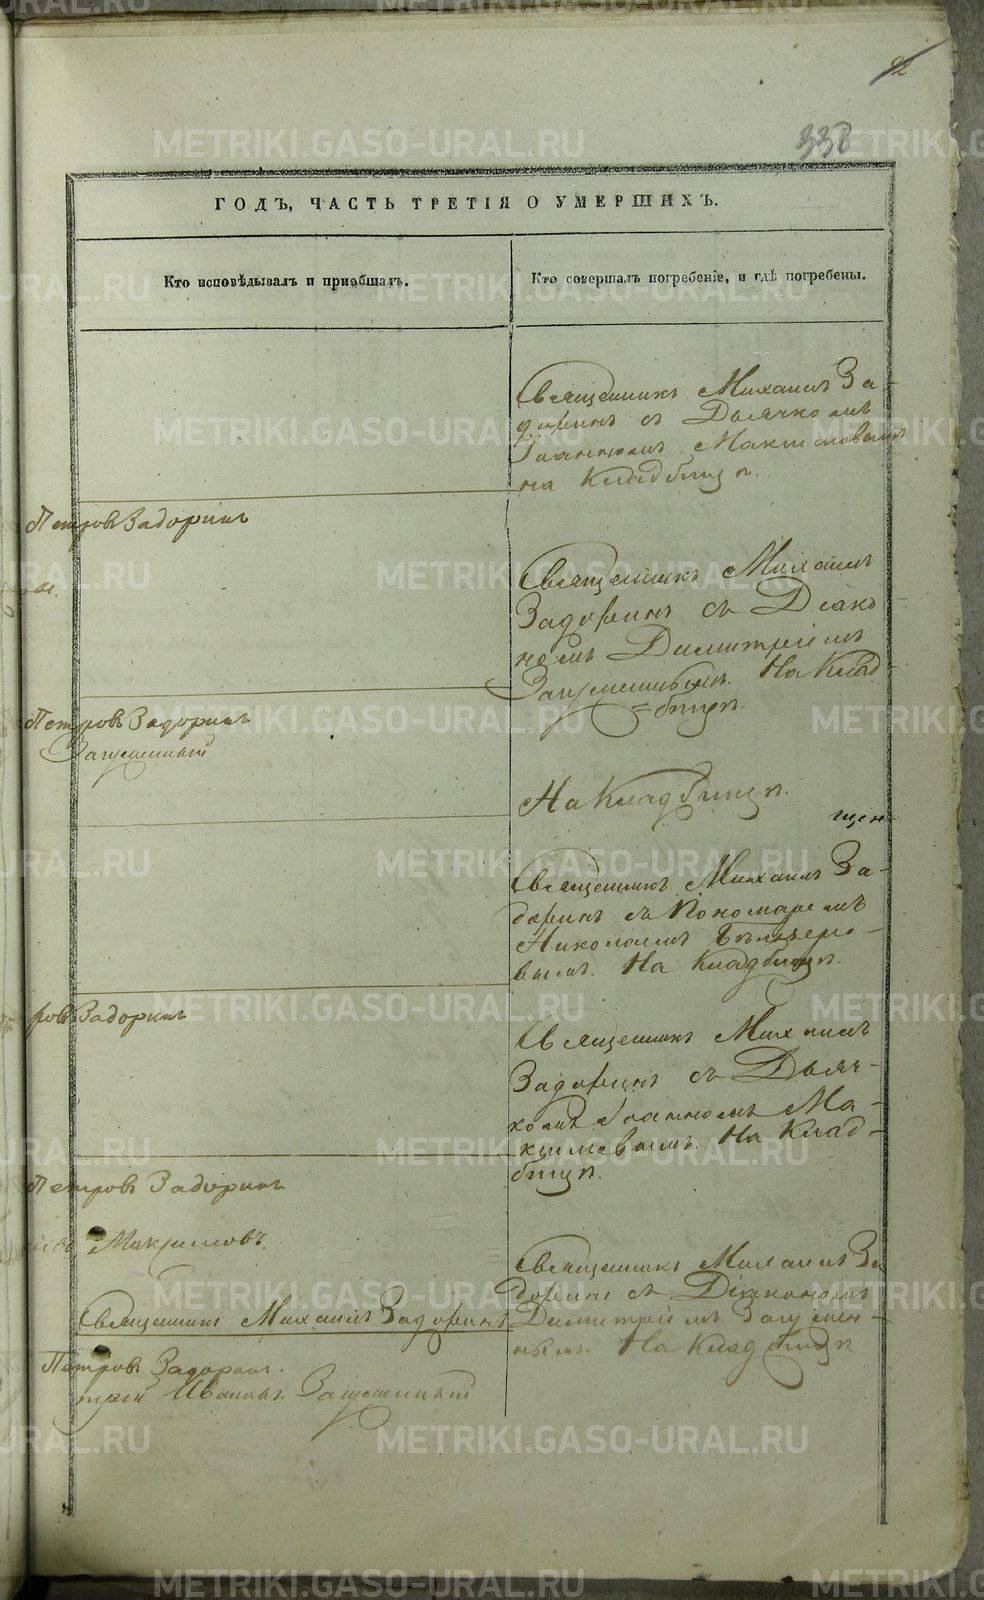 92
338
ГОДЪ, ЧАСТЬ ТРЕТІЯ О УМЕРШИХЪ.
Кто исповѣдывалъ и пріобщалъ.
Кто совершалъ погребеніе, и гдѣ погребены.
Священникъ Михаилъ За-
доринъ съ Дьячкомъ
Іоанномъ Максимовымъ
на Кладбищѣ.
Петровъ Задоринъ
Священникъ Михаилъ
Задоринъ съ Діако-
номъ Димитріемъ
На Клад-
=бищѣ.
Петровъ Задоринъ
На Кладбищѣ.
щен-
Священникъ Михаилъ За-
доринъ съ Пономаремъ
Николаемъ
вымъ. На Кладбищѣ.
ровъ Задоринъ
Священникъ Михаилъ
Задоринъ съ Дьяч-
комъ Іоанномъ Ма-
ксимовымъ. На Клад-
бищѣ.
Петровъ Задоринъ
Максимовъ.
Священникъ Михаилъ За-
доринъ съ Діакономъ
Димитріемъ
нымъ. На Кладбищѣ
Священникъ Михаилъ Задоринъ
Петровъ Задоринъ.
трій Ивановъ
METRIKI.GASO-URAL.RU